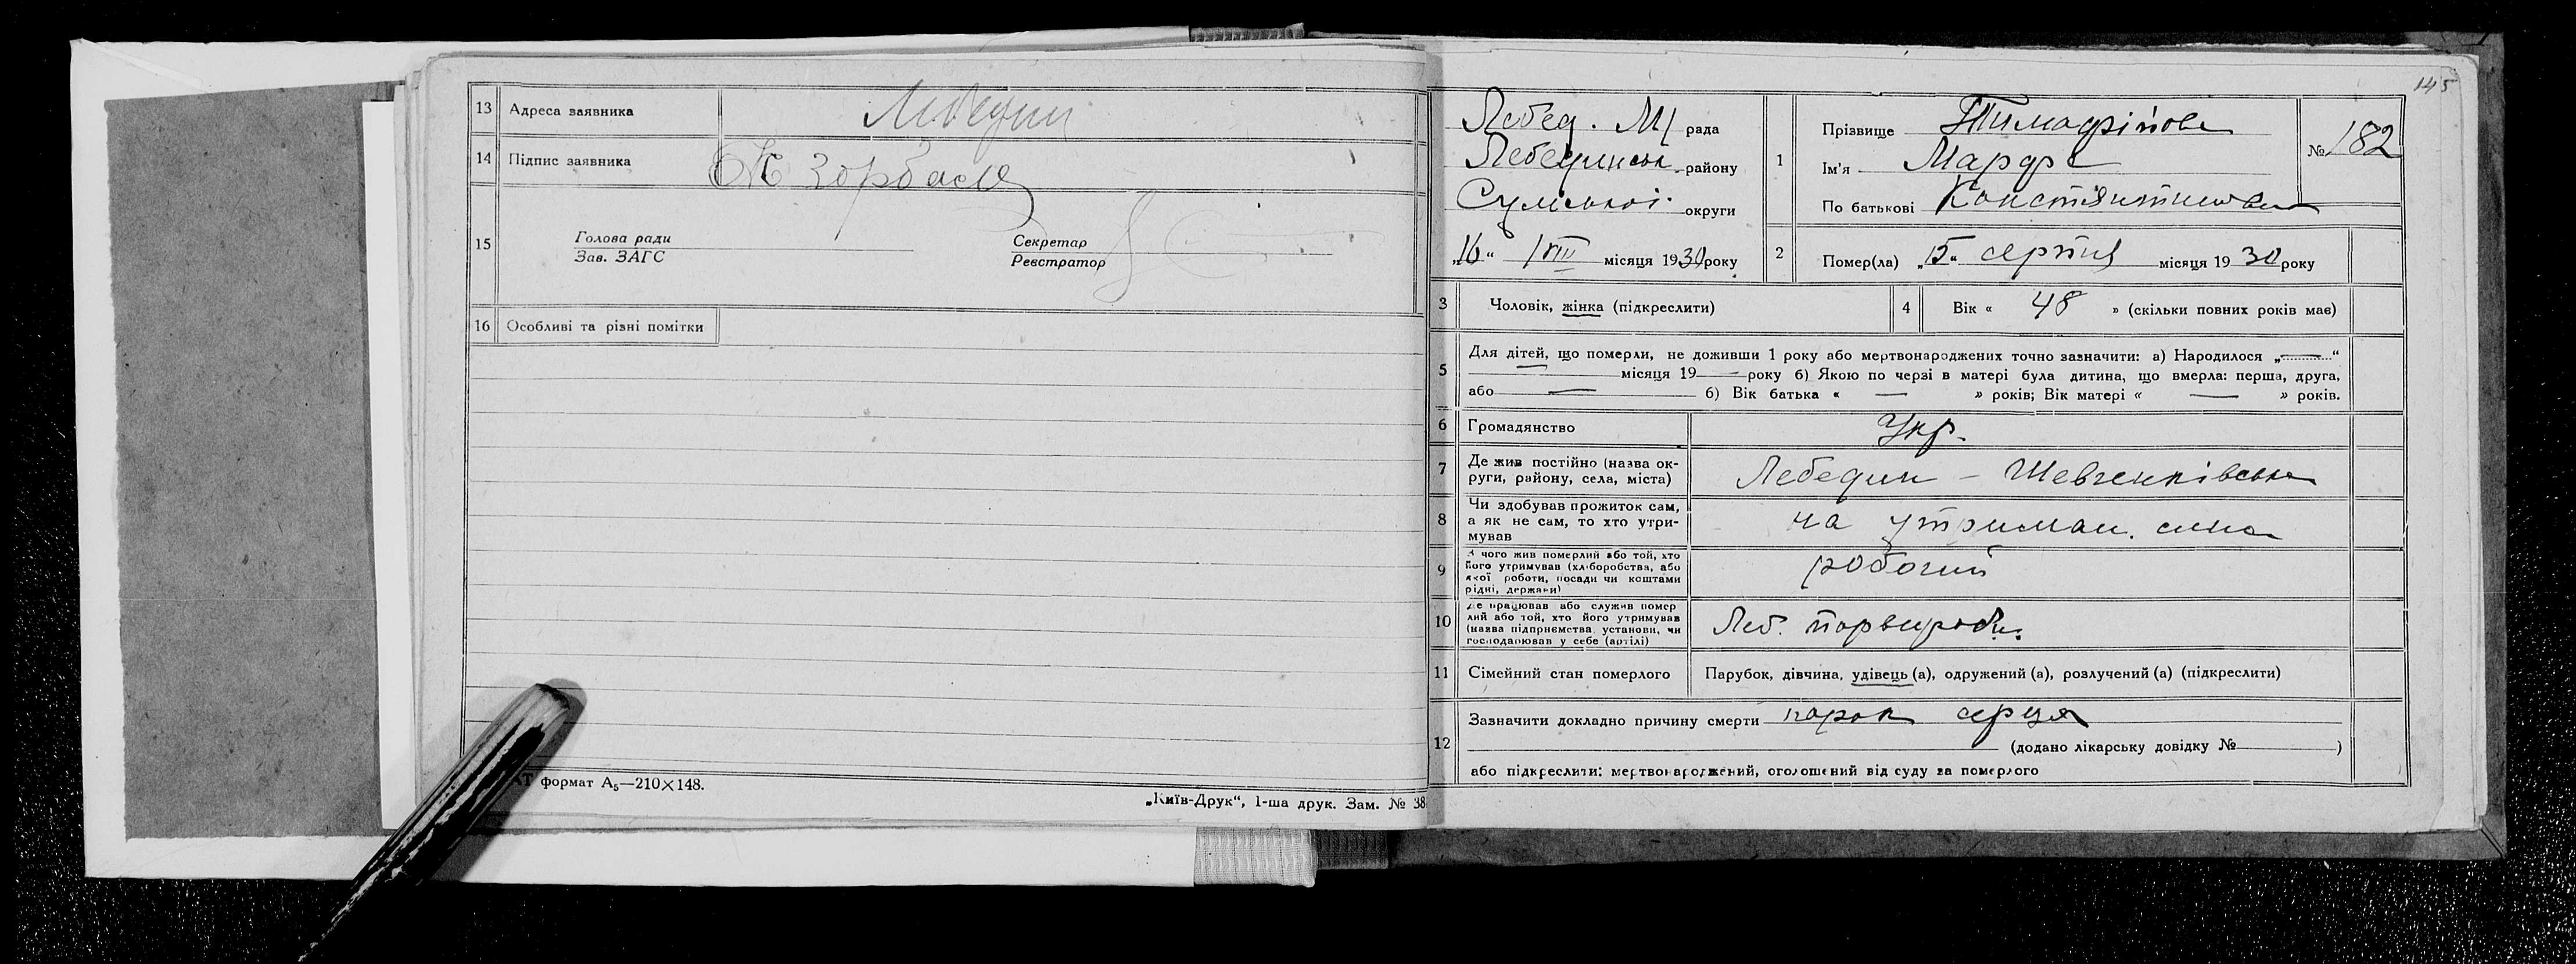 13 Адреса заявника Лебедин
14 Підпис заявника
15 Голова ради
Зав. ЗАГС
Секретар
Реєстратор
16 Особливі та різні помітки
формат А5—210×148.
„Київ-Друк“, 1-ша друк. Зам. № 38
145
Лебед. М/ рада
Лебединськ. району
Сумської округи
„16“ VIII місяця 1930 року
1 Прізвище Тимофійова
Ім'я Марфа
По батькові Константиновна
№ 182
2 Помер(ла) „15“ серпня місяця 1930 року
3 Чоловік, жінка (підкреслити)
4 Вік « 48 » (скільки повних років має)
5 Для дітей, що померли, не доживши 1 року або мертвонароджених точно зазначити: а) Народилося „—“
— місяця 19 — року б) Якою по черзі в матері була дитина, що вмерла: перша, друга,
або — б) Вік батька « — » років; Вік матері « — » років.
6 Громадянство Укр.
7 Де жив постійно (назва ок-
руги, району, села, міста) Лебедин – Шевченківська
8 Чи здобував прожиток сам,
а як не сам, то хто утри-
мував на утриман. сина
9 З чого жив померлий або той, хто
його утримував (хліборобства, або
якої роботи, посади чи коштами
рідні, держави) робочий
10 Де працював або служив помер
лий або той, хто його утримував
(назва підприємства, установи, чи
господарював у себе (артілі) Леб.
11 Сімейний стан померлого Парубок, дівчина, удівець (а), одружений (а), розлучений (а) (підкреслити)
12 Зазначити докладно причину смерти порок серця
(додано лікарську довідку № )
або підкреслити: мертвонароджений, оголошений від суду за померлого